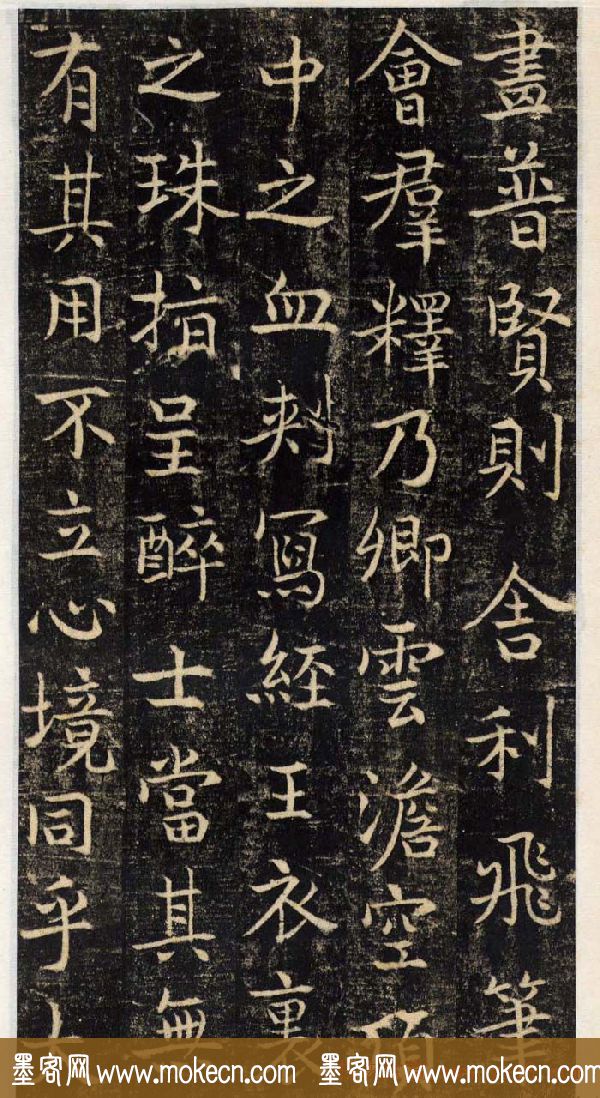 畫普賢則舍利飛筆
會羣釋乃卿雲澹空頂
中之血刺寫經王衣裏
之珠指呈醉士當其無
有其用不立心境同乎大
墨客网 www.mokecn.com 墨客网 www.mokecn.com